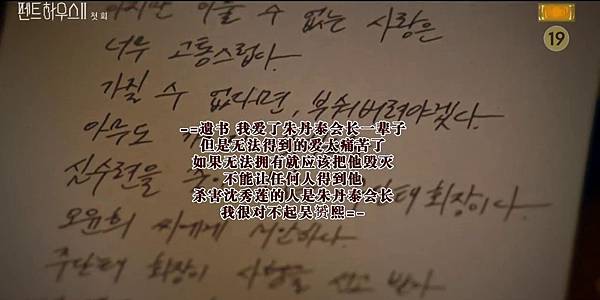 펜트하우스II 첫 회
19
이룰 수 없는 사랑은
너무 고통스럽다.
가질 수 없다면, 부숴버려야겠다.
아무도
심수련을
태 회장이다.
오윤희 씨에게 미안하다.
주단태 회장이 사형을 선고 받아
-=遗书 我爱了朱丹泰会长一辈子
但是无法得到的爱太痛苦了
如果无法拥有就应该把他毁灭
不能让任何人得到他
杀害沈秀莲的人是朱丹泰会长
我很对不起吴赟熙=-